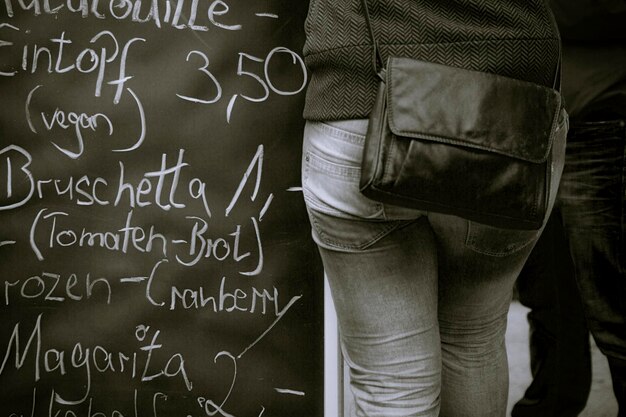 Ratatouille –
Eintopf 3,50
(vegan)
Bruschetta 1,-
(Tomaten-Brot)
rozen - Cranberry
Magarita 2,-